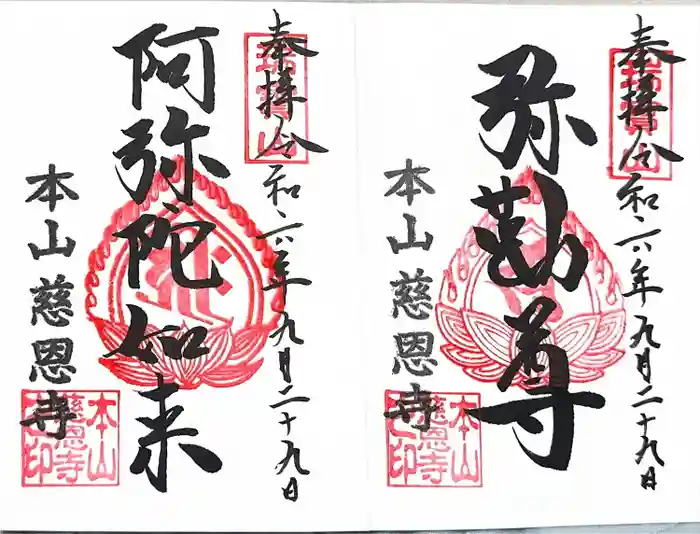 奉拝 令和六年九月二十九日
瑞寶山
弥勒尊
本山慈恩寺
本山
慈恩寺
之印
奉拝 令和六年九月二十九日
瑞寶山
阿弥陀如来
本山慈恩寺
本山
慈恩寺
之印